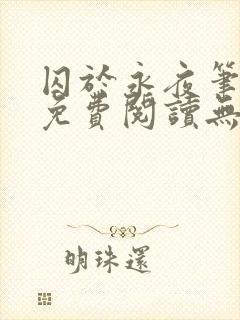 囚於永夜筆
免費閱讀無
明珠還